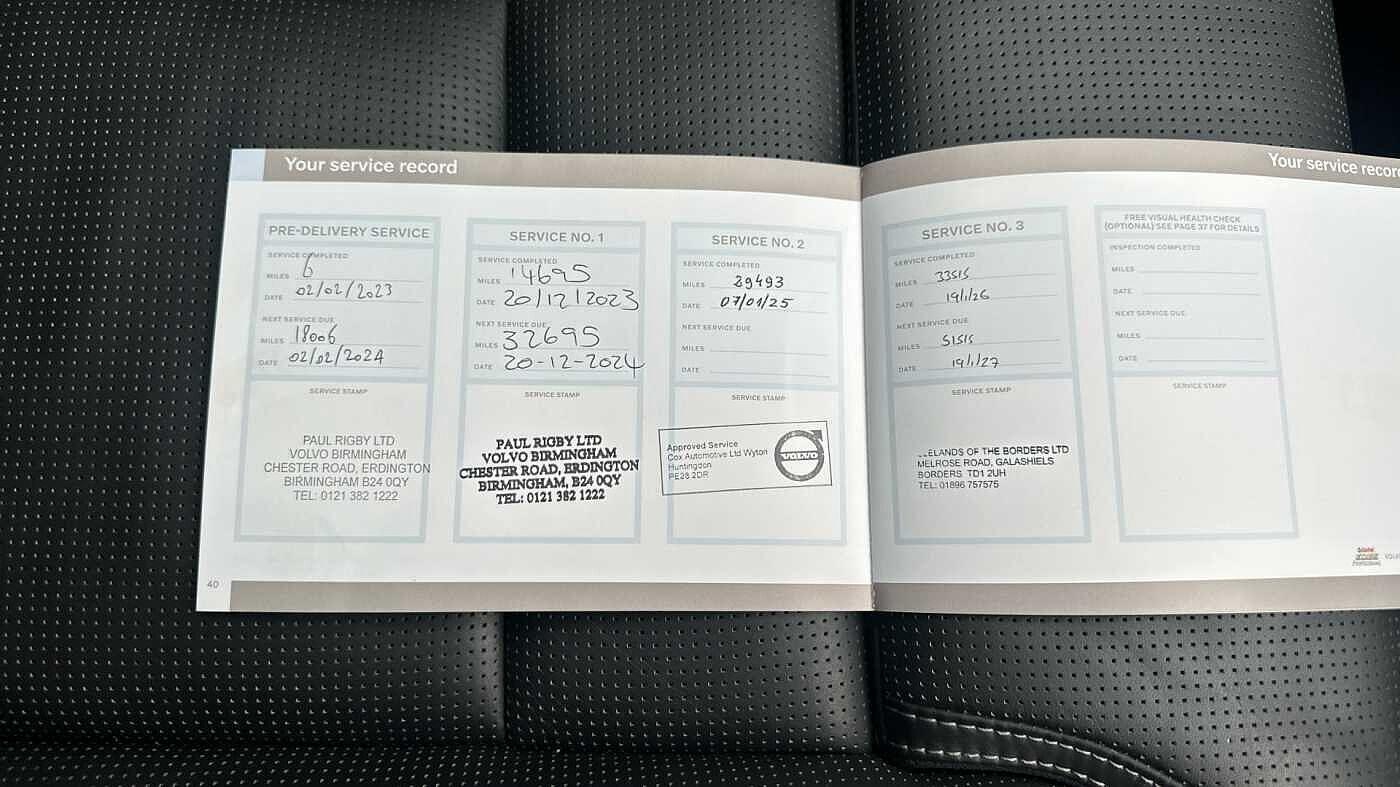 Your service record
PRE-DELIVERY SERVICE
SERVICE COMPLETED
MILES 6
DATE 02/02/2023
NEXT SERVICE DUE
MILES 18006
DATE 02/02/2024
SERVICE STAMP
PAUL RIGBY LTD
VOLVO BIRMINGHAM
CHESTER ROAD, ERDINGTON
BIRMINGHAM B24 0QY
TEL: 0121 382 1222
SERVICE NO. 1
SERVICE COMPLETED
MILES 14695
DATE 20/12/2023
NEXT SERVICE DUE
MILES 32695
DATE 20-12-2024
SERVICE STAMP
PAUL RIGBY LTD
VOLVO BIRMINGHAM
CHESTER ROAD, ERDINGTON
BIRMINGHAM, B24 0QY
TEL: 0121 382 1222
SERVICE NO. 2
SERVICE COMPLETED
MILES 29493
DATE 07/01/25
NEXT SERVICE DUE
MILES
DATE
SERVICE STAMP
Approved Service
Cox Automotive Ltd Wyton
Huntingdon
PE28 2DR
VOLVO
40
Your service recor
SERVICE NO. 3
SERVICE COMPLETED
MILES 33515
DATE 19/1/26
NEXT SERVICE DUE
MILES 51515
DATE 19/1/27
SERVICE STAMP
ELANDS OF THE BORDERS LTD
MELROSE ROAD, GALASHIELS
BORDERS. TD1 2UH
TEL: 01896 757575
FREE VISUAL HEALTH CHECK
(OPTIONAL) SEE PAGE 37 FOR DETAILS
INSPECTION COMPLETED
MILES
DATE
NEXT SERVICE DUE
MILES
DATE
SERVICE STAMP
Castrol
EDGE
PROFESSIONAL